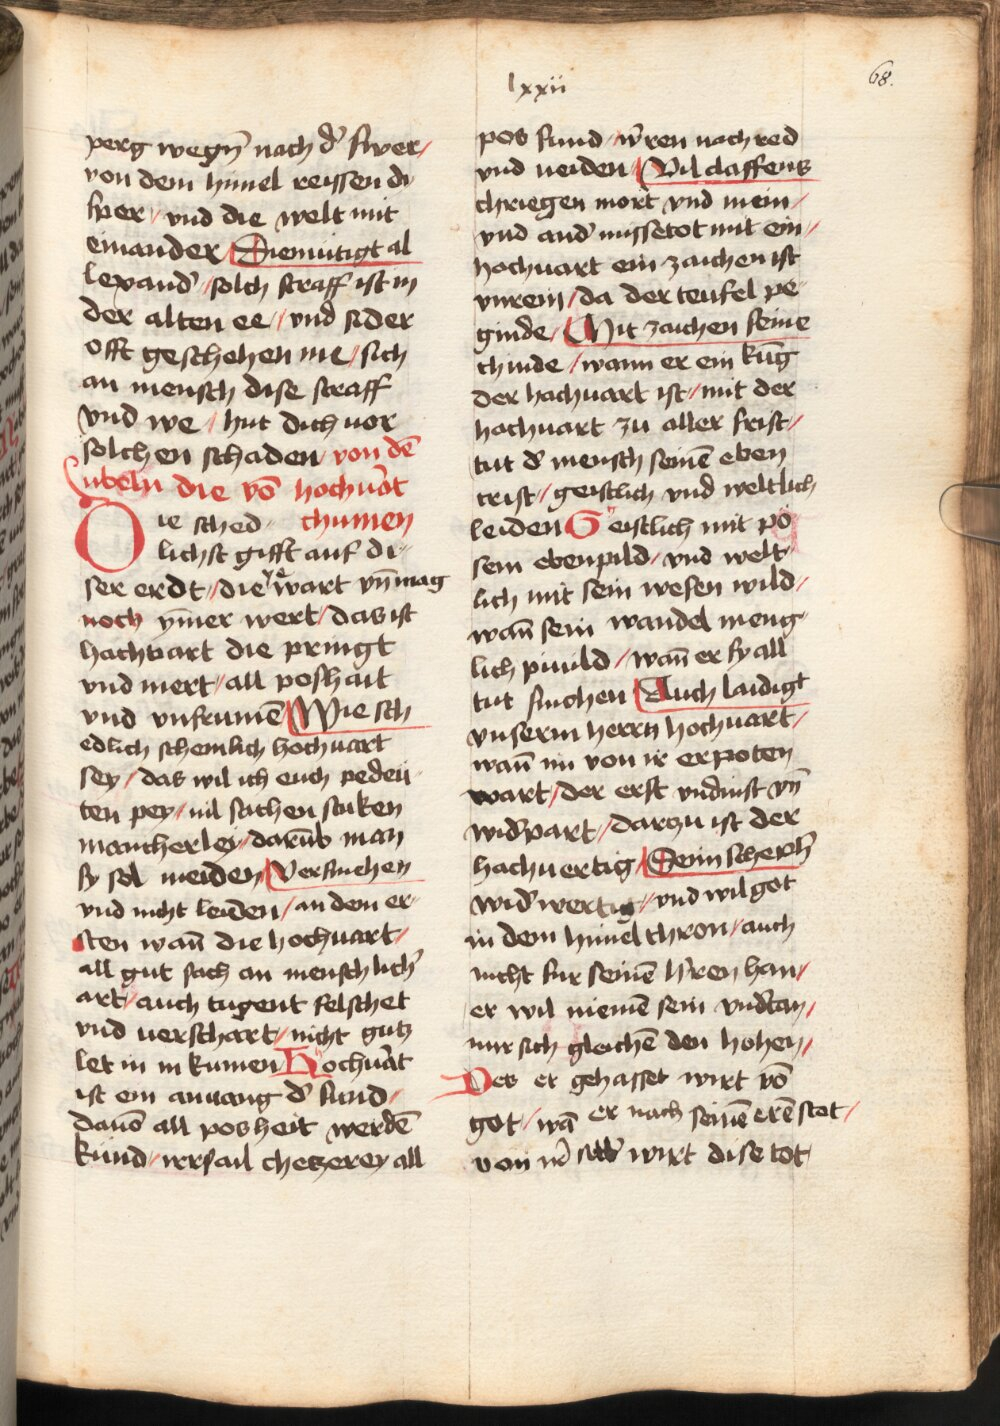 lxxii
68.
perg wegn̄ nach d' swer /
von dem himel reissen di
sper / vnd die welt mit
einander Diemutigt al
lexand' / solch straff ist in
der alten ee / vnd sider
offt geschehen me / sich
an mensch dise straff
vnd we / hut dich vor
solchen schaden von dē
vbeln die vō hochuart
Die sched chumen
lichst gifft auf di
ser erdt / die wart vn̄ mag
noch ym̄er wert / das ist
hachuart die pringt
vnd mert / all poshait
vnd vnfrumē Wie sch
edlich schemlich hochuart
sey / das wil ich euch pedeu
ten pey / uil sachen staken
mancherley / darūb man
sy sol meiden Versuchen
vnd nicht leiden / an dem er
sten wan̄ die hochuart /
all gut sach an menschlich'
art / auch tugent felschet
vnd uerschart / nicht gutz
let in in kumen Hochuart
ist ein anuang d' sund /
dauō all posheit werdē
kund / irrsail chetzerey all
pos sund / w'ren nach red
vnd neiden Vil claffens
chriegen mort vnd mein /
vnd and' missetot mit ein /
hochuart ein zaichen ist
vnrein / da der teufel pe
ginde / Mit zaichen seine
chinde / wann er ein kūg
der hachuart ist / mit der
hachuart zu aller frist /
tut d' mensch seinē eben
crist / geistlich vnd weltlich
leiden Geistlich mit po
sem ebenpild / vnd welt
lich mit sein wesen wild /
wan̄ sein wandel meng
lich piuild / wan̄ er sy all
tut fluchen Auch laidigt
vnserm herrn hochuart /
wan̄ im von ir erpoten
wart / der erst vndinst vn̄
wid'part / darzu ist der
hachuertig Dem scheph'
wid'wertig / vnd wil got
in dem himel thron / auch
nicht fur seinē h'ren han /
er wil niemē sein vnd'tan /
nur sich gleichē den hohen /
Des er gehasset wirt vō
got / wā er nach seinē erē stet /
von im wirt dise tot